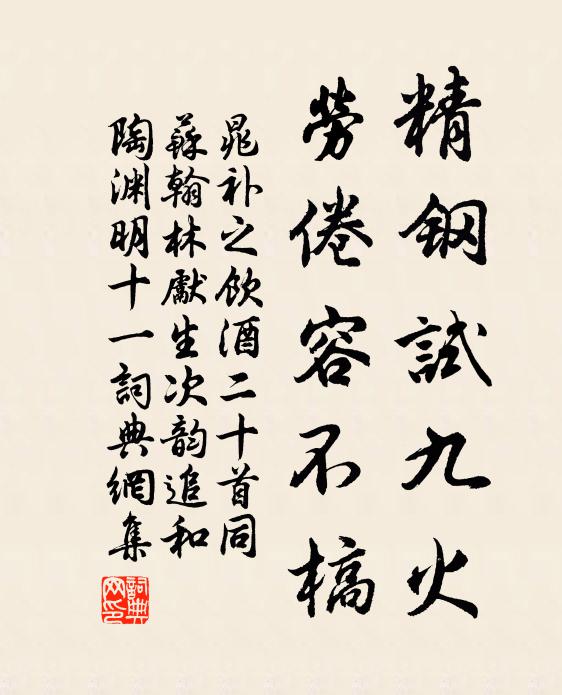 精鋼試九火
勞倦容不槁
晁补之飲酒二十首同
蘇翰林獻生次韵追和
陶渊明十一詞典網集
詞典网印